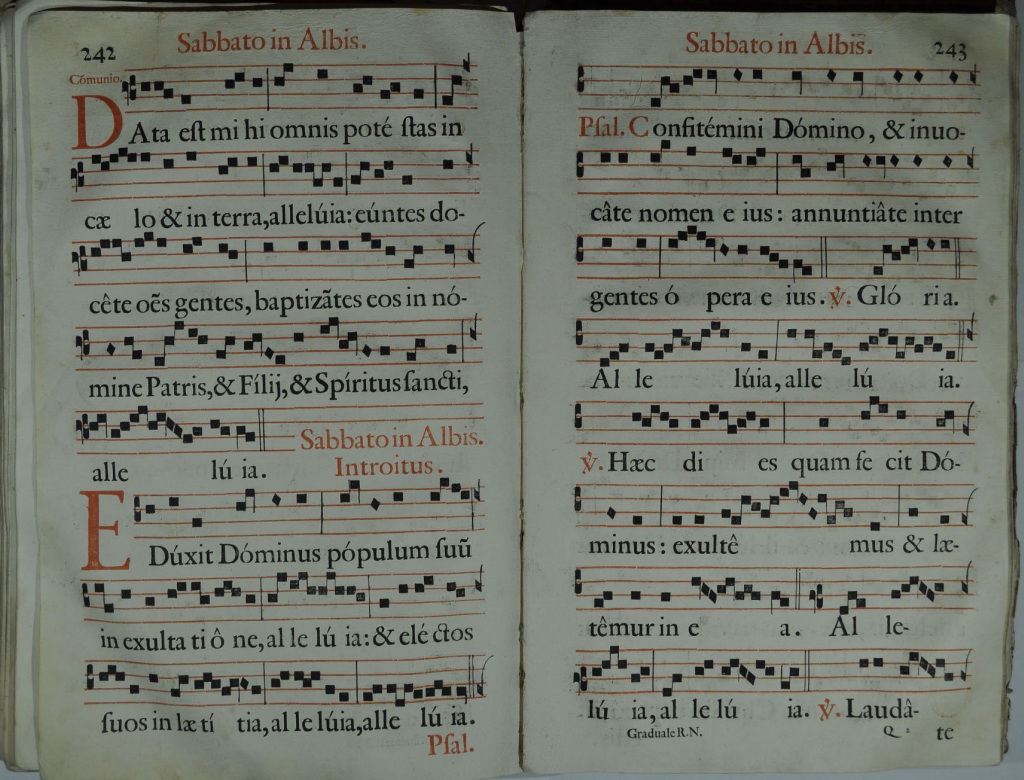 242
Sabbato in Albis.
Cõmunio.
DAta eſt mi hi omnis poté ſtas in
cæ lo & in terra, allelúia: eúntes do-
cête oẽs gentes, baptizãtes eos in nó-
mine Patris, & Fílij, & Spíritus ſancti,
Sabbato in Albis.
alle lú ia. Introitus.
EDúxit Dóminus pópulum ſuũ
in exulta ti ô ne, al le lú ia: & elé ctos
ſuos in læ tí tia, al le lúia, alle lú ia.
Pſal.
Sabbato in Albis.
243
Pſal. Confitémini Dómino, & inuo-
câte nomen e ius: annuntiâte inter
gentes ó pera e ius. ℣. Gló ria.
Al le lúia, alle lú ia.
℣. Hæc di es quam fe cit Dó-
minus: exultê mus & læ-
têmur in e a. Al le-
lú ia, al le lú ia. ℣. Laudâ-
Graduale R.N. Q 2 te